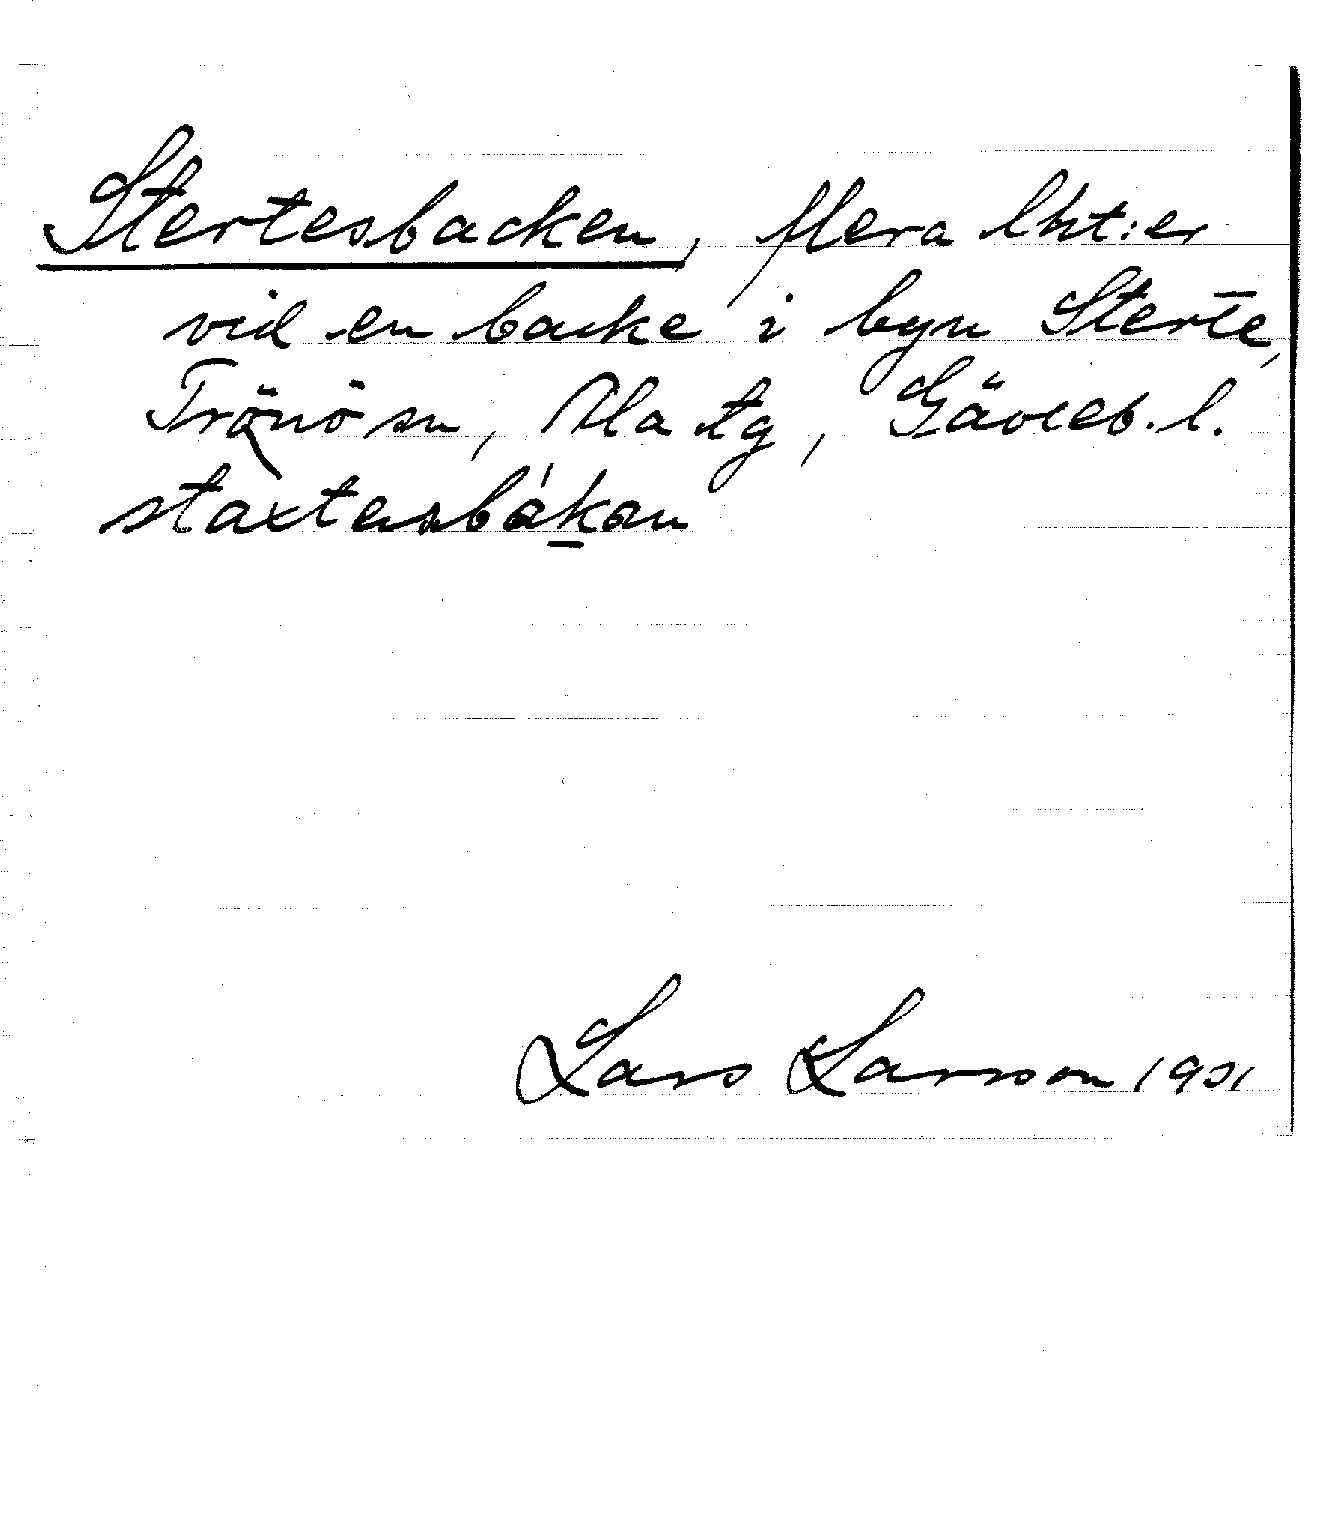 Stertesbacken, flera lht:er
vid en backe i byn Sterte,
Trönö sn, Ala tg, Gävleb. l.
Lars Larsson 1931